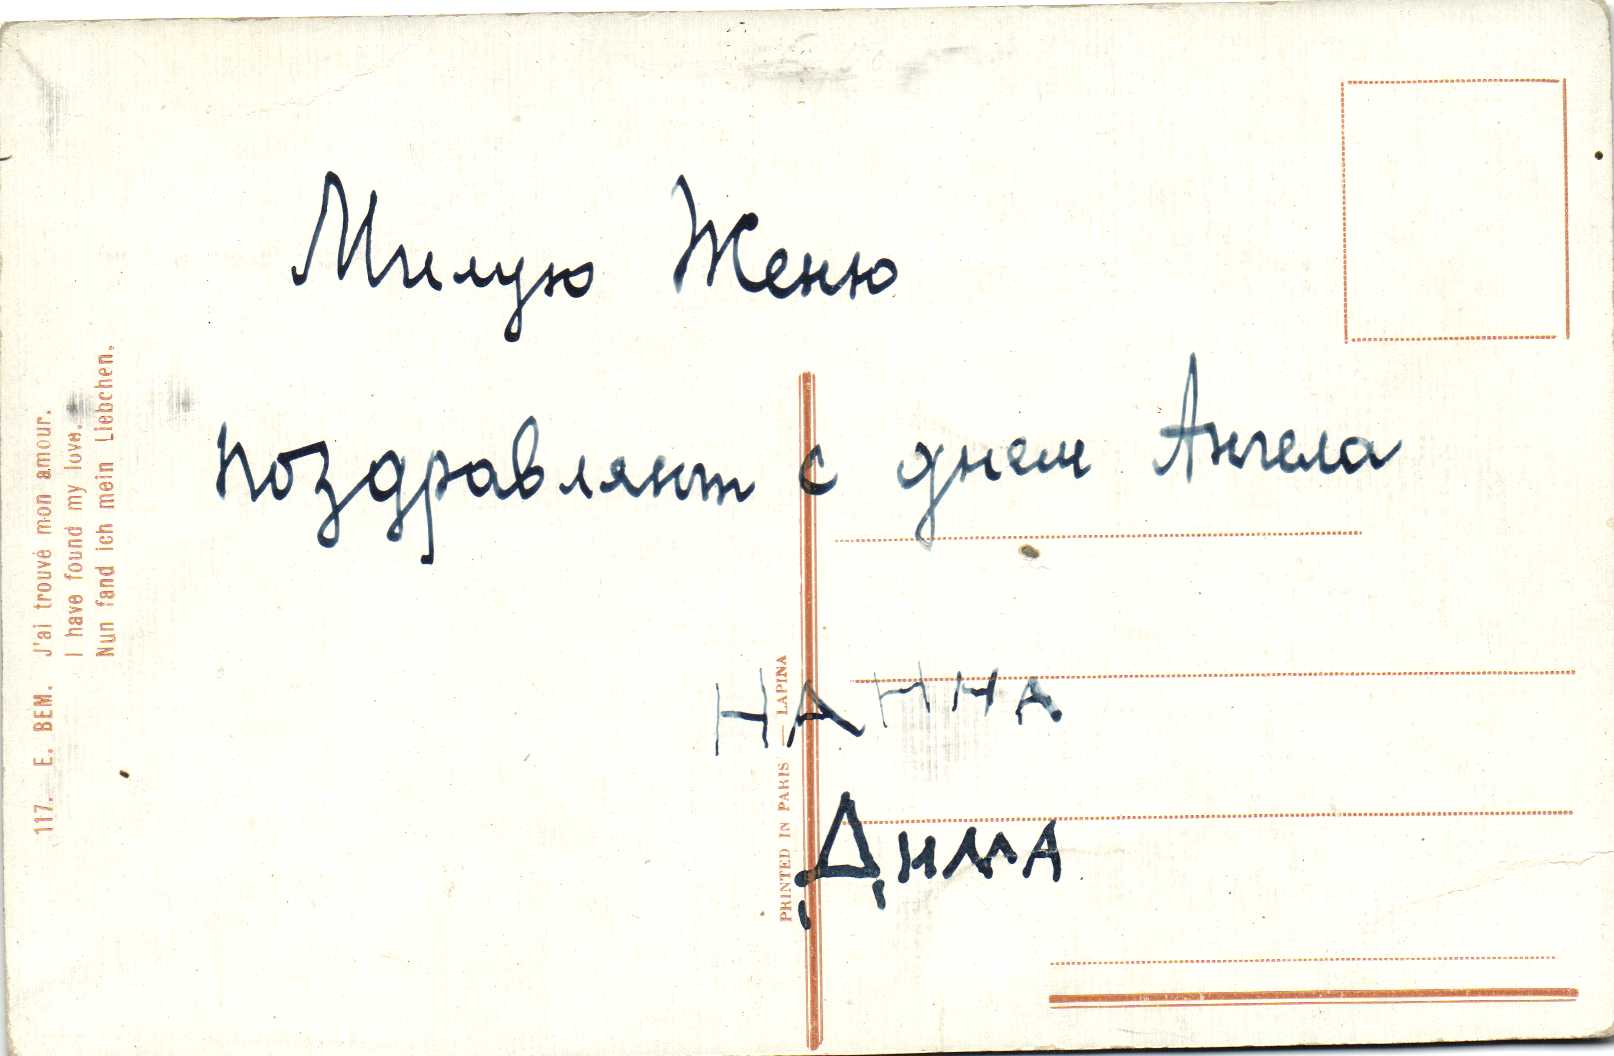 Милую Женю
поздравляют с днем Ангела
НАННА
ДИМА
117. E. BEM. J'ai trouvé mon amour.
I have found my love.
Nun fand ich mein Liebchen.
PRINTED IN PARIS — LAPINA